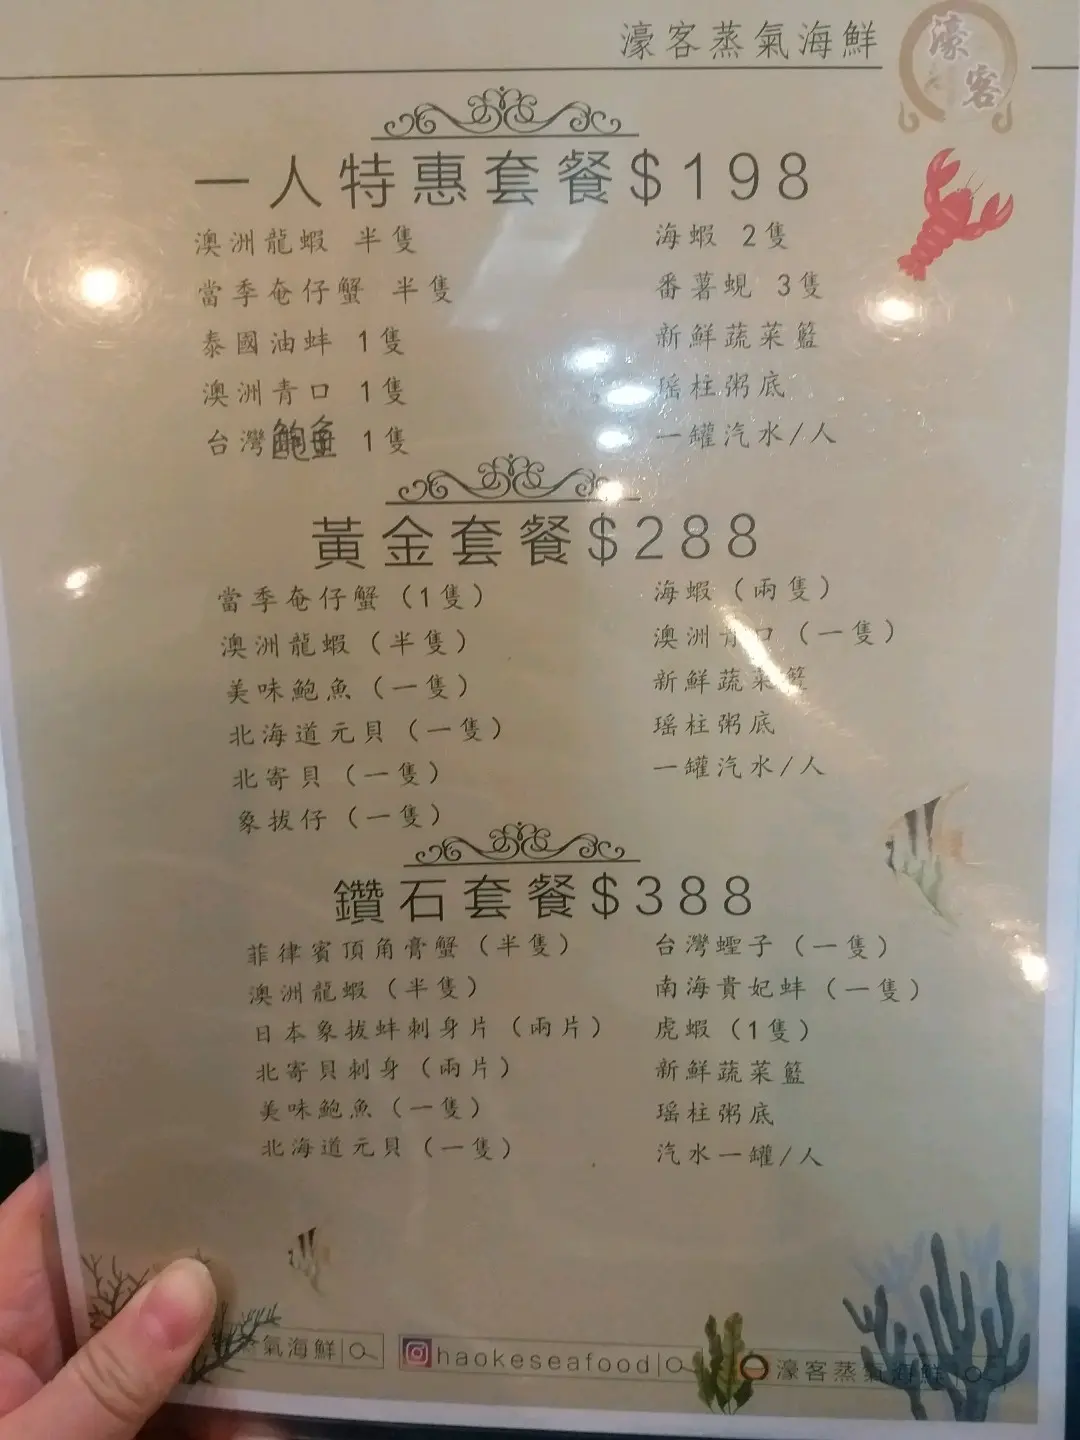 濠客蒸氣海鮮
濠客
一人特惠套餐$198
澳洲龍蝦 半隻
當季奄仔蟹 半隻
泰國油蚌 1隻
澳洲青口 1隻
台灣鮑魚 1隻
海蝦 2隻
番薯蜆 3隻
新鮮蔬菜籃
瑤柱粥底
一罐汽水/人
黃金套餐$288
當季奄仔蟹(1隻)
澳洲龍蝦(半隻)
美味鮑魚(一隻)
北海道元貝(一隻)
北寄貝(一隻)
象拔仔(一隻)
海蝦(兩隻)
澳洲青口(一隻)
新鮮蔬菜籃
瑤柱粥底
一罐汽水/人
鑽石套餐$388
菲律賓頂角膏蟹(半隻)
澳洲龍蝦(半隻)
日本象拔蚌刺身片(兩片)
北寄貝刺身(兩片)
美味鮑魚(一隻)
北海道元貝(一隻)
台灣蟶子(一隻)
南海貴妃蚌(一隻)
虎蝦(1隻)
新鮮蔬菜籃
瑤柱粥底
汽水一罐/人
蒸氣海鮮
haokeseafood
濠客蒸氣海鮮